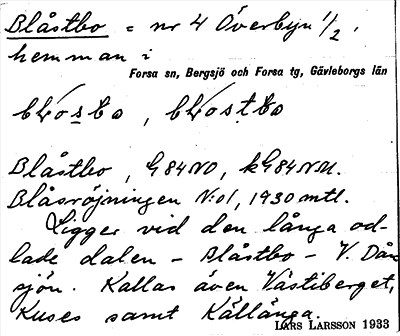 Blåstbo = nr 4 Överbyn 1/2,
hemman i
Forsa sn, Bergsjö och Forsa tg, Gävleborgs län
Blåstbo, G84NO, kG84NM.
Blåsröjningen N:o1, 1930 mtl.
Ligger vid den långa od-
lade dalen - Blåstbo - V. Dån
sjön. Kallas även Västiberget,
Kuses samt Källänga.
LARS LARSSON 1933